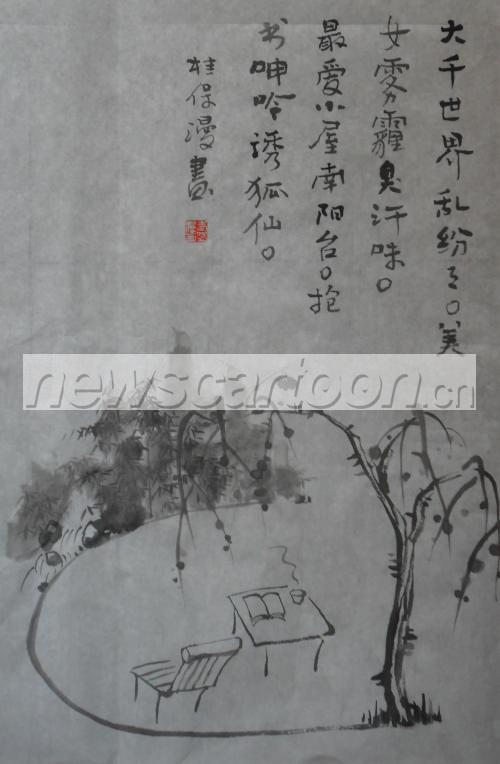 大千世界乱纷々。美
女雾霾臭汗味。
最爱小屋南阳台。抱
书呻吟诱狐仙。
桂保漫画
newscartoon.cn